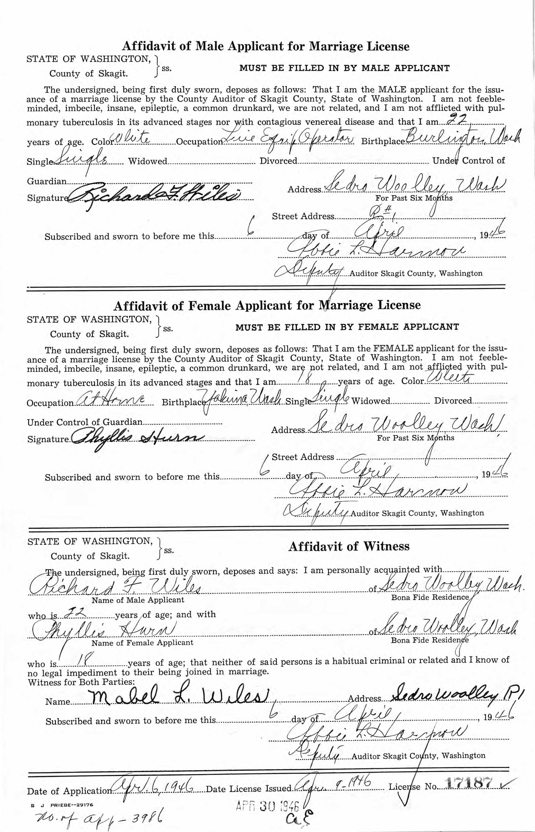 Affidavit of Male Applicant for Marriage License
STATE OF WASHINGTON, } ss. MUST BE FILLED IN BY MALE APPLICANT
County of Skagit.
The undersigned, being first duly sworn, deposes and says: That I am the MALE applicant for the issu-
ance of a marriage license by the County Auditor of Skagit County, State of Washington. I am not feeble-
minded, imbecile, insane, epileptic, a common drunkard, we are not related, and I am not afflicted with pul-
monary tuberculosis in its advanced stages nor with contagious venereal disease and that I am 22
years of age. Color White Occupation Equip Operator Birthplace Burlington, Wash
Single Single Widowed Divorced Under Control of
Guardian
Signature Richard F. Wiles Address Sedro Woolley, Wash
For Past Six Months
Street Address R #1
Subscribed and sworn to before me this 6 day of April, 1946
L. Harmon
Deputy Auditor Skagit County, Washington
Affidavit of Female Applicant for Marriage License
STATE OF WASHINGTON, } ss. MUST BE FILLED IN BY FEMALE APPLICANT
County of Skagit.
The undersigned, being first duly sworn, deposes and says: That I am the FEMALE applicant for the issu-
ance of a marriage license by the County Auditor of Skagit County, State of Washington. I am not feeble-
minded, imbecile, insane, epileptic, a common drunkard, we are not related, and I am not afflicted with pul-
monary tuberculosis in its advanced stages and that I am 18 years of age. Color White
Occupation At Home Birthplace Yakima Wash Single Single Widowed Divorced
Under Control of Guardian
Signature Phyllis Hurn Address Sedro Woolley Wash
For Past Six Months
Street Address
Subscribed and sworn to before me this 6 day of April, 1946
L. Harmon
Deputy Auditor Skagit County, Washington
STATE OF WASHINGTON, } ss. Affidavit of Witness
County of Skagit.
The undersigned, being first duly sworn, deposes and says: I am personally acquainted with
Richard F. Wiles of Sedro Woolley Wash.
Name of Male Applicant Bona Fide Residence
who is 22 years of age; and with
Phyllis Hurn of Sedro Woolley, Wash
Name of Female Applicant Bona Fide Residence
who is 18 years of age; that neither of said persons is a habitual criminal or related and I know of
no legal impediment to their being joined in marriage.
Witness for Both Parties:
Name Mabel L. Wiles Address Sedro Woolley R1
Subscribed and sworn to before me this 6 day of April, 1946
L. Harmon
Deputy Auditor Skagit County, Washington
Date of Application Apr. 6, 1946 Date License Issued Apr. 9-1946 License No. 17187 ✓
S J PRIEBE--29176 APR 30 1946
no. of app - 3986